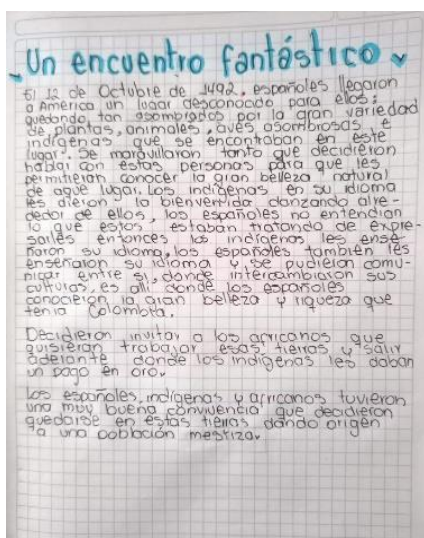 Un encuentro fantástico
El 12 de Octubre de 1492, españoles llegaron
a América un lugar desconocido para ellos;
quedando tan asombrados por la gran variedad
de plantas, animales, aves asombrosas e
indígenas que se encontraban en este
lugar. Se maravillaron tanto que decidieron
hablar con estas personas para que les
permitieran conocer la gran belleza natural
de aquel lugar. Los indígenas en su idioma
les dieron la bienvenida, danzando alre-
dedor de ellos, los españoles no entendían
lo que estos estaban tratando de expre-
sarles entonces los indígenas les ense-
ñaron su idioma, los españoles también les
enseñaron su idioma y se pudieron comu-
nicar entre si, donde intercambiaron sus
culturas, es allí donde los españoles
conocieron la gran belleza y riqueza que
tenia Colombia.
Decidieron invitar a los africanos que
quisieran trabajar esas tierras y salir
adelante donde los indígenas les daban
un pago en oro.
Los españoles, indígenas y africanos tuvieron
una muy buena convivencia que decidieron
quedarse en estas tierras dando origen
a una población mestiza.